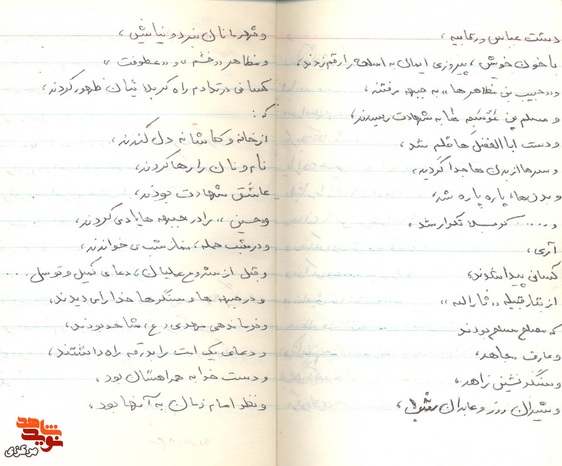 دست عباس ورعاییه،
با خون خویش، پیروزی ایمان به اسلحه را رقم زدند،
و «حبیب بن مظاهرها» به جبهه رفتند،
و مسلم بن عوسجه ها به شهادت رسیدند،
و دست ابا الفضل ها قلم شد،
و سرها از بدن ها جدا گردید،
و بدن ها، پاره پاره شد،
و ..... کربلا تکرار شد،
آری،
کسانی پیدا شدند،
از تبار قبیله «ثارالله»
که مصلح مسلح بودند
و عارف مجاهد،
و سنگرنشین زاهد،
و شیران روز و عابدان شب،
و قهرمانان نبرد و نیایش،
و مظاهر «خشم» و «عطوفت»
کسانی در تداوم راه کربلائیان ظهور کردند،
که:
از خانه و کاشانه دل کندند،
نام و نان را رها کردند،
عاشق شهادت بودند،
«حسین» را در جبهه ها یاری کردند،
و در شب حمله، نماز شب می خواندند،
و قبل از شروع عملیات، دعای کمیل و توسل...
و در جبهه ها و سنگرها خدا را می دیدند،
و فرماندهی مهدی (ع) شاهد بودند،
و دعای یک امت را بدرقه راه داشتند،
و دست خدا به همراهشان بود،
و نظر امام زمان به آنها بود،
نوید شاهد
مرکزی